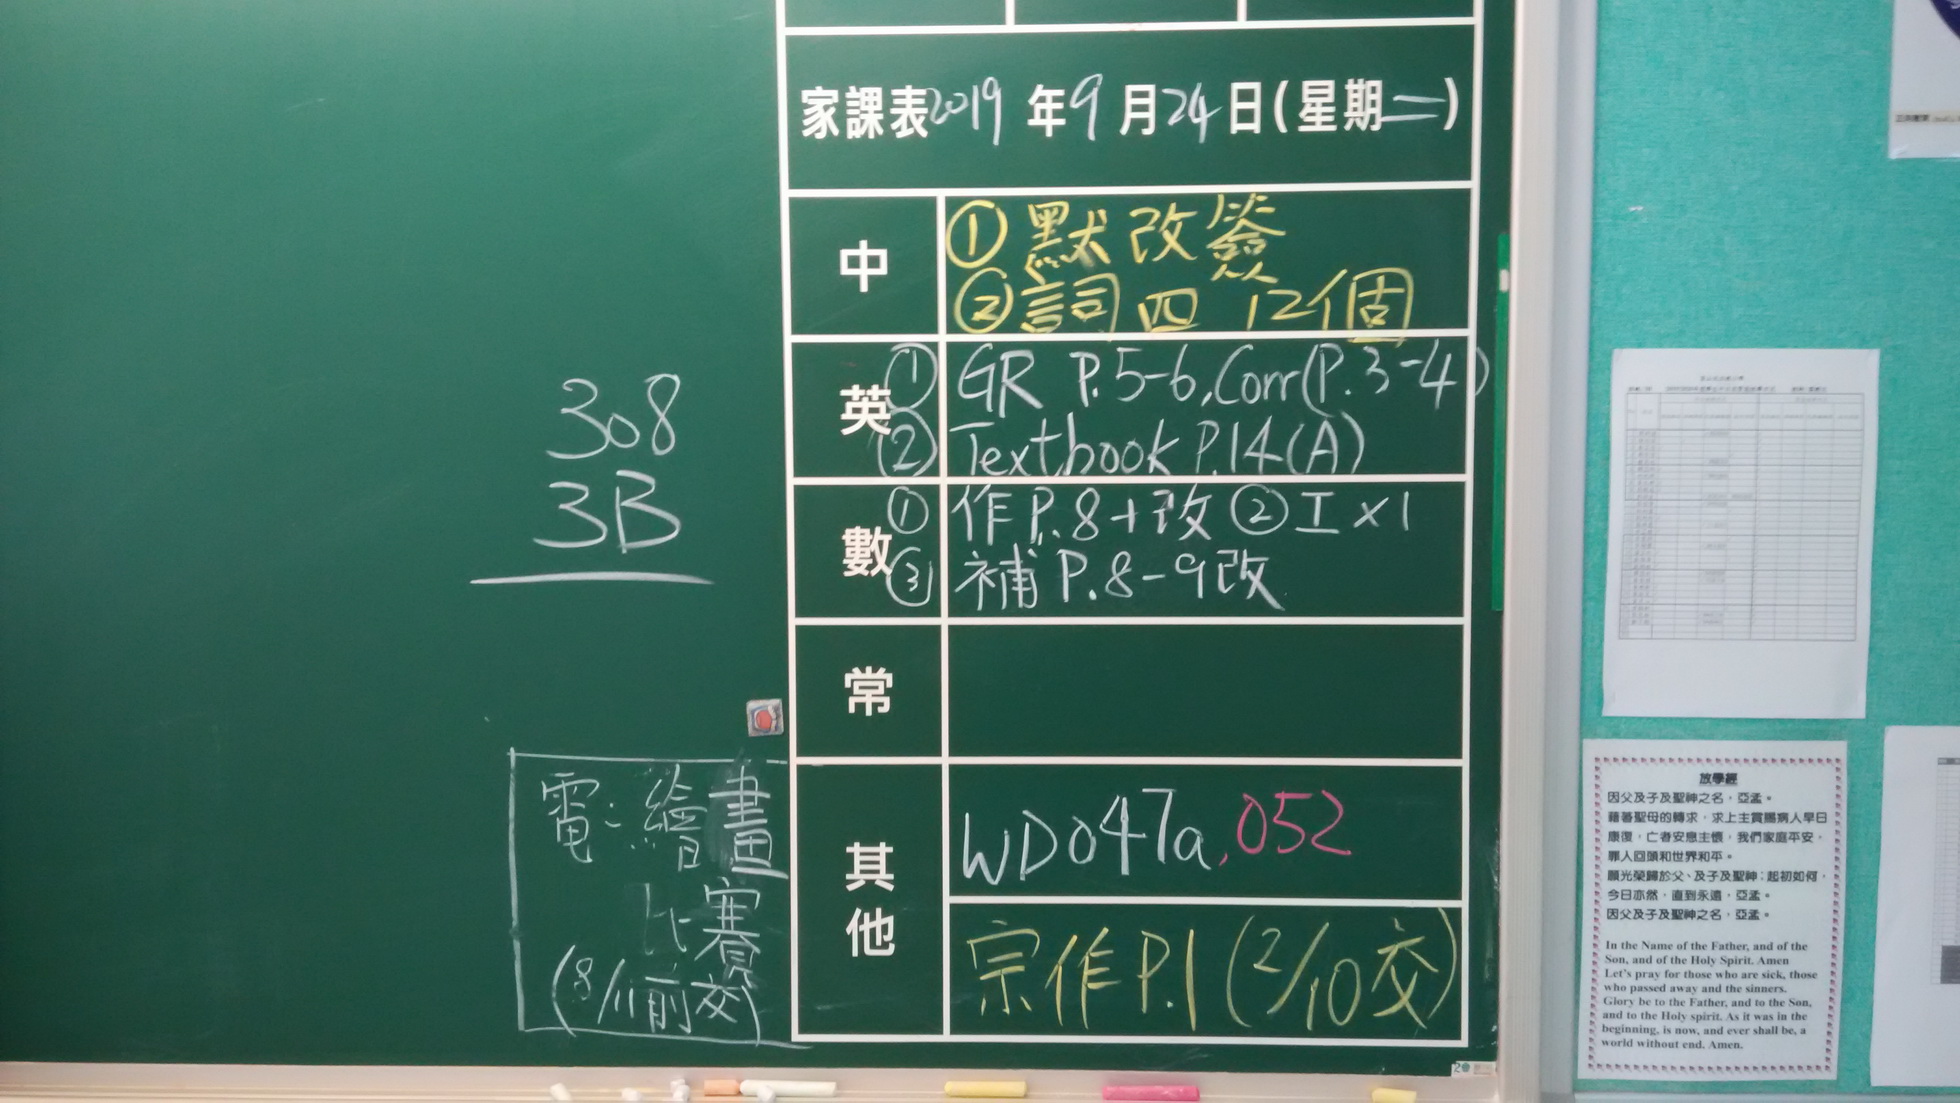 家課表2019年9月24日(星期二)
中
① 默改簽
② 詞四 12個
英
① GR P.5-6, Corr(P.3-4)
② Textbook P.14(A)
數
① 作P.8+改 ② 工×1
③ 補P.8-9改
常
其他
WD047a, 052
宗作P.1 (2/10交)
308
3B
電:繪畫
比賽
(8/11前交)
放學經
因父及子及聖神之名,亞孟。
藉著聖母的轉求,求上主賞賜病人早日
康復,亡者安息主懷,我們家庭平安,
罪人回頭和世界和平。
願光榮歸於父、及子及聖神;起初如何,
今日亦然,直到永遠,亞孟。
因父及子及聖神之名,亞孟。
In the Name of the Father, and of the
Son, and of the Holy Spirit. Amen
Let's pray for those who are sick, those
who passed away and the sinners.
Glory be to the Father, and to the Son,
and to the Holy spirit. As it was in the
beginning, is now, and ever shall be, a
world without end. Amen.